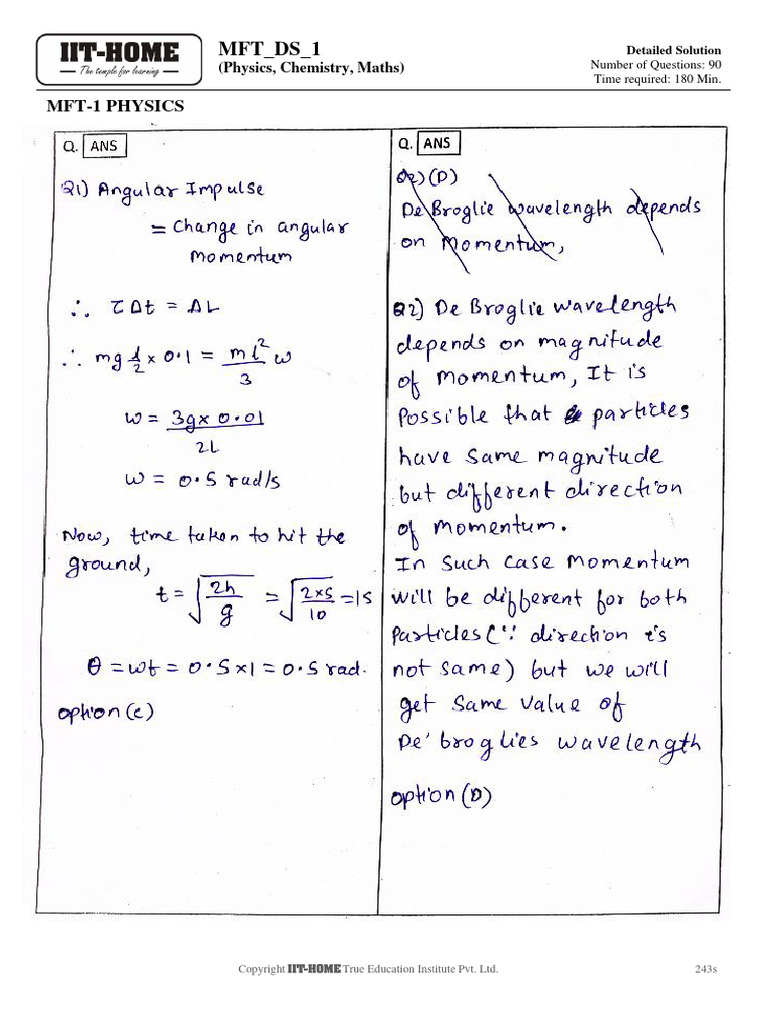 IIT-HOME
The temple for learning
MFT_DS_1
(Physics, Chemistry, Maths)
Detailed Solution
Number of Questions: 90
Time required: 180 Min.
MFT-1 PHYSICS
Q. ANS
Q1) Angular Impulse
= Change in angular
momentum
∴ τΔt = ΔL
∴ mg l/2 × 0.1 = ml²/3 ω
ω = 3g × 0.01 / 2L
ω = 0.5 rad/s
Now, time taken to hit the
ground,
t = √(2h/g) = √(2×5/10) = 1s
θ = ωt = 0.5 × 1 = 0.5 rad.
option (c)
Q. ANS
Q2) (D)
De Broglie wavelength depends
on Momentum,
Q2) De Broglie wavelength
depends on magnitude
of momentum, It is
Possible that particles
have same magnitude
but different direction
of momentum.
In such case momentum
will be different for both
Particles (∵ direction is
not same) but we will
get same value of
De' broglies wavelength
option (D)
Copyright IIT-HOME True Education Institute Pvt. Ltd.
243s